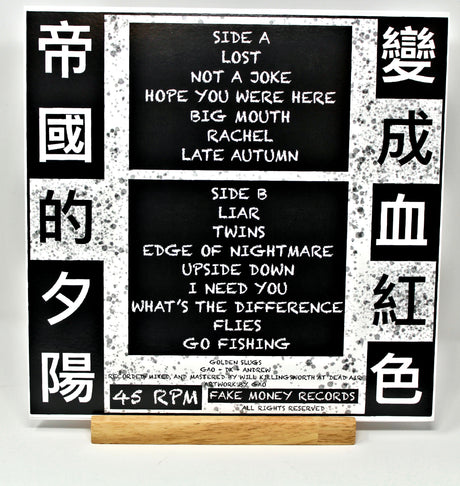 帝國的夕陽
變成血紅色
SIDE A
LOST
NOT A JOKE
HOPE YOU WERE HERE
BIG MOUTH
RACHEL
LATE AUTUMN
SIDE B
LIAR
TWINS
EDGE OF NIGHTMARE
UPSIDE DOWN
I NEED YOU
WHAT'S THE DIFFERENCE
FLIES
GO FISHING
GOLDEN SLUGS
GAO - DK - ANDREW
RECORDED MIXED, AND MASTERED BY WILL KILLINGSWORTH AT DEAD AIR
ARTWORK BY GAO
45 RPM
FAKE MONEY RECORDS
ALL RIGHTS RESERVED